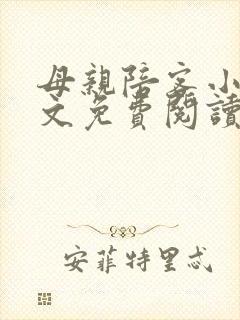 母親陪客小
文免費閱讀
安菲特里忒